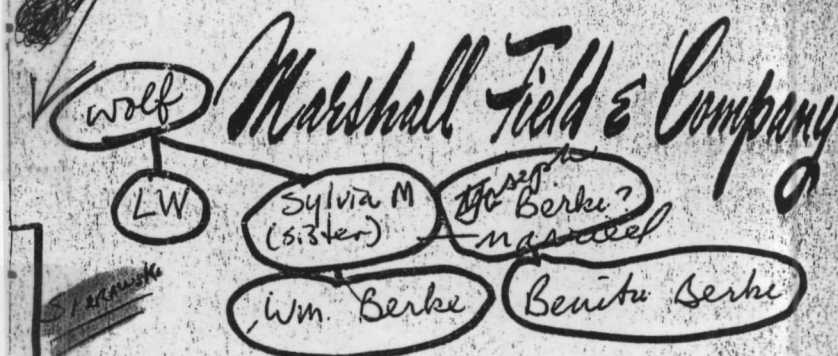 Marshall Field & Company
Wolf
LW
Sylvia M
(sister)
Joseph
Berke?
married
Wm. Berke
Benita Berke